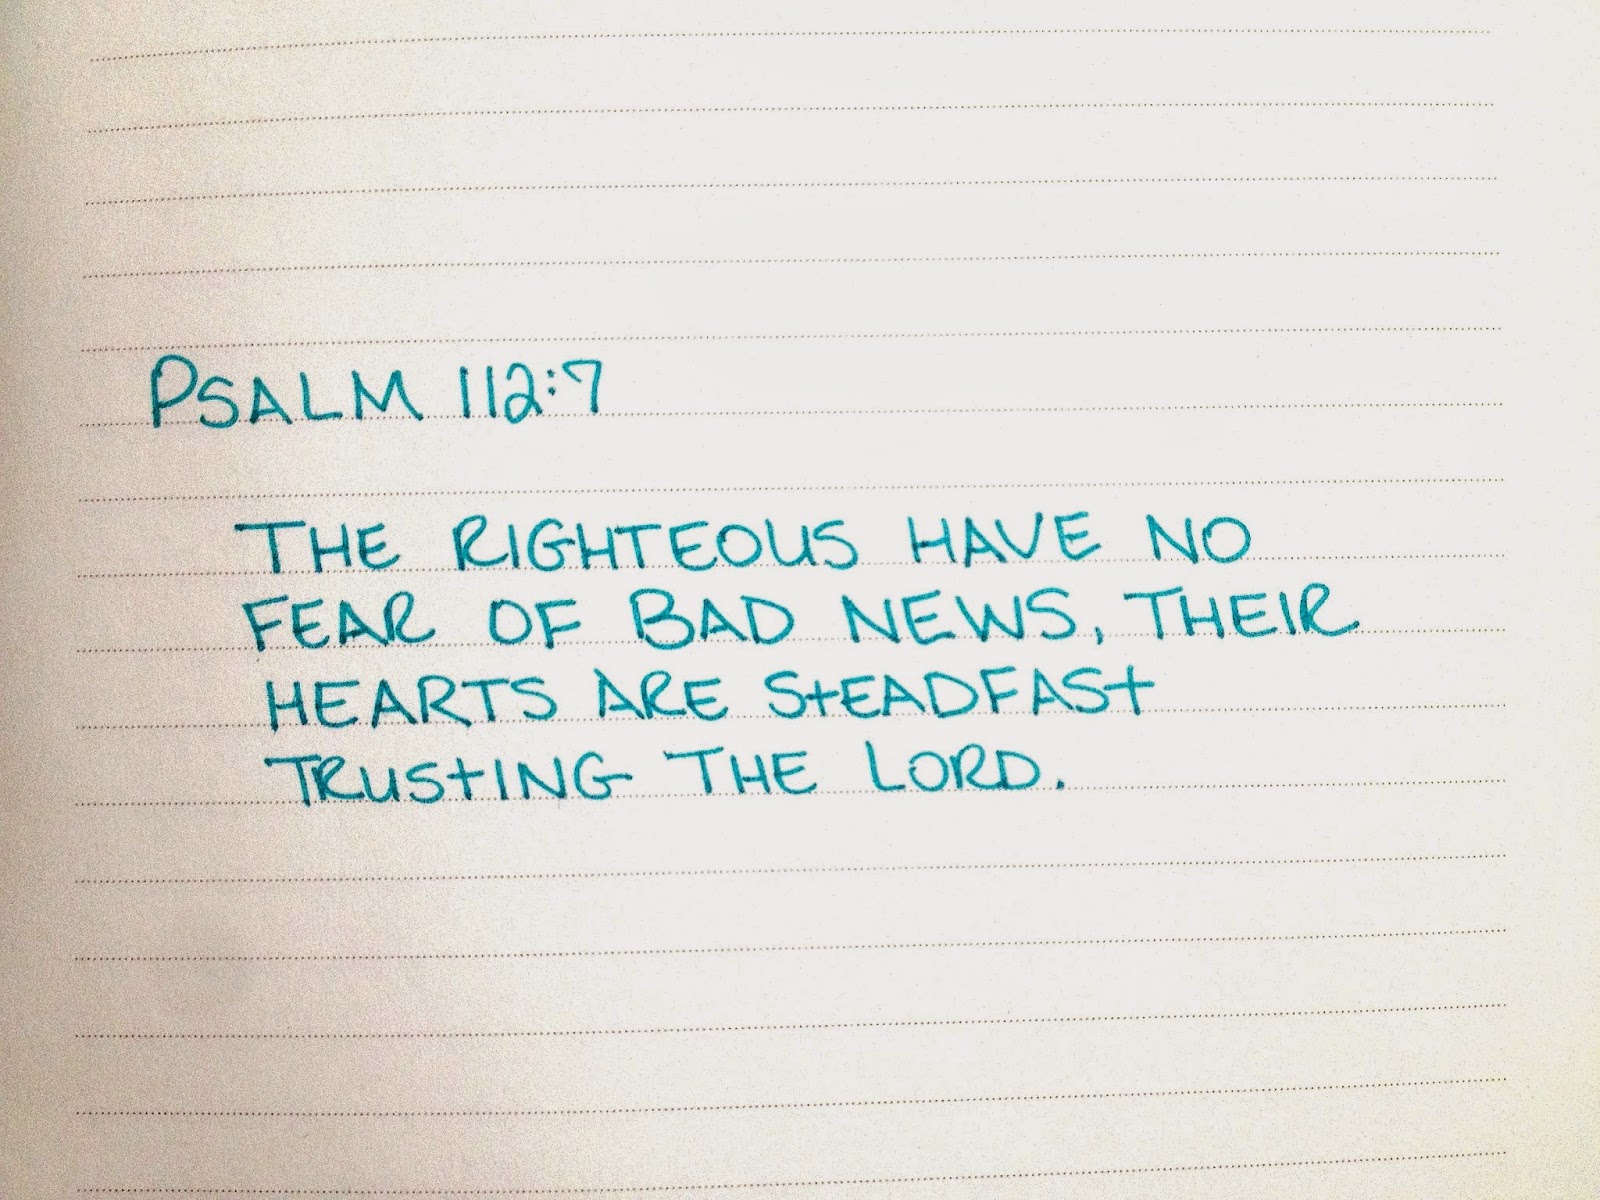 PSALM 112:7
THE RIGHTEOUS HAVE NO
FEAR OF BAD NEWS, THEIR
HEARTS ARE StEADFASt
TRUStING THE LORD.